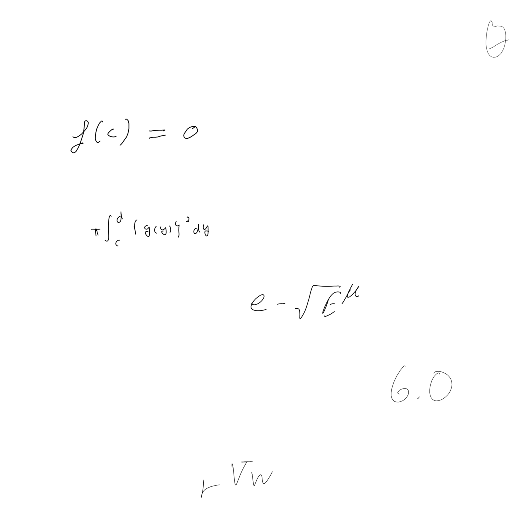 θ
f(c) = 0
π∫_c^d {g(y)}^2 dy
e - √E^μ
6.0
r^{∇w}